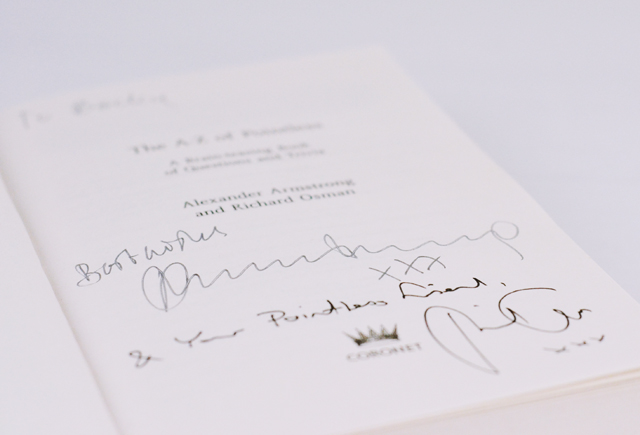 To
The A-Z of Pointless
A Brain-teasing Bash
of Questions and Trivia
Alexander Armstrong
and Richard Osman
Best wishes
xxx
& Your Pointless Friend,
CORONET
xxx